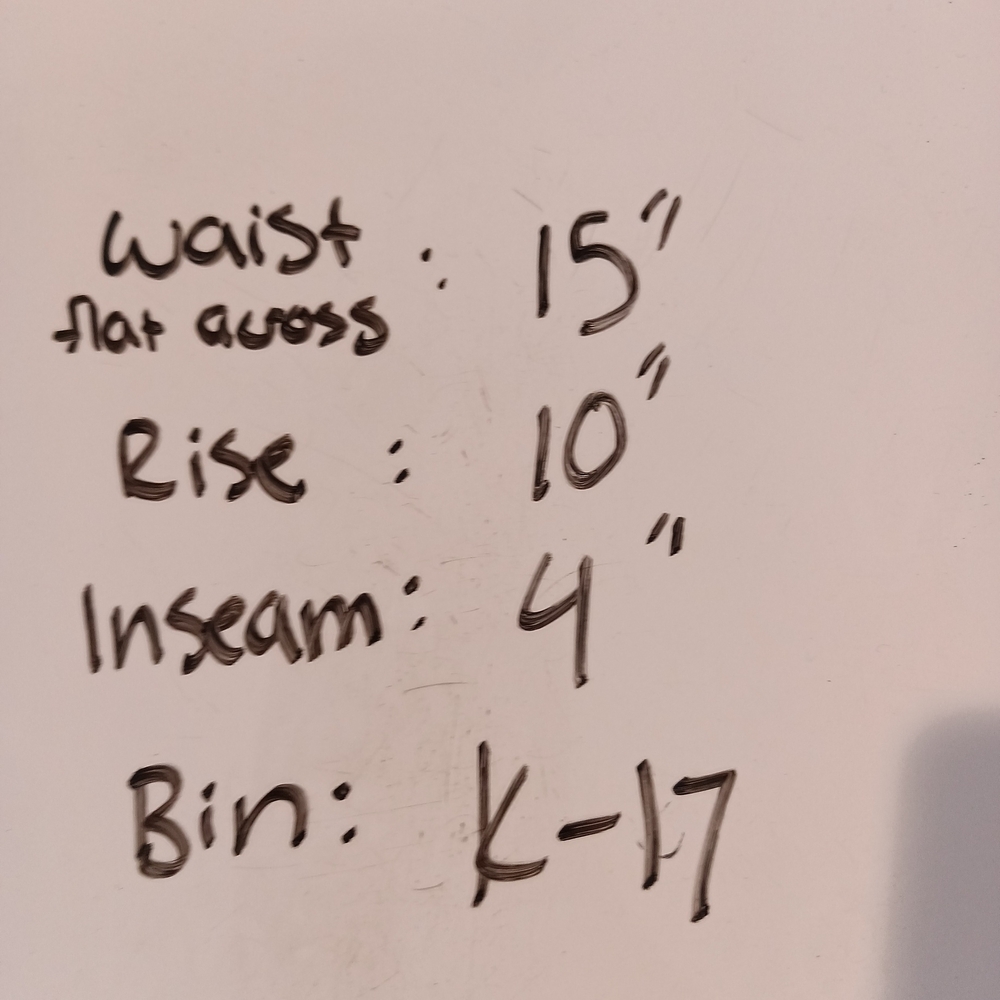 Waist : 15"
flat across
Rise : 10"
Inseam: 4"
Bin: K-17